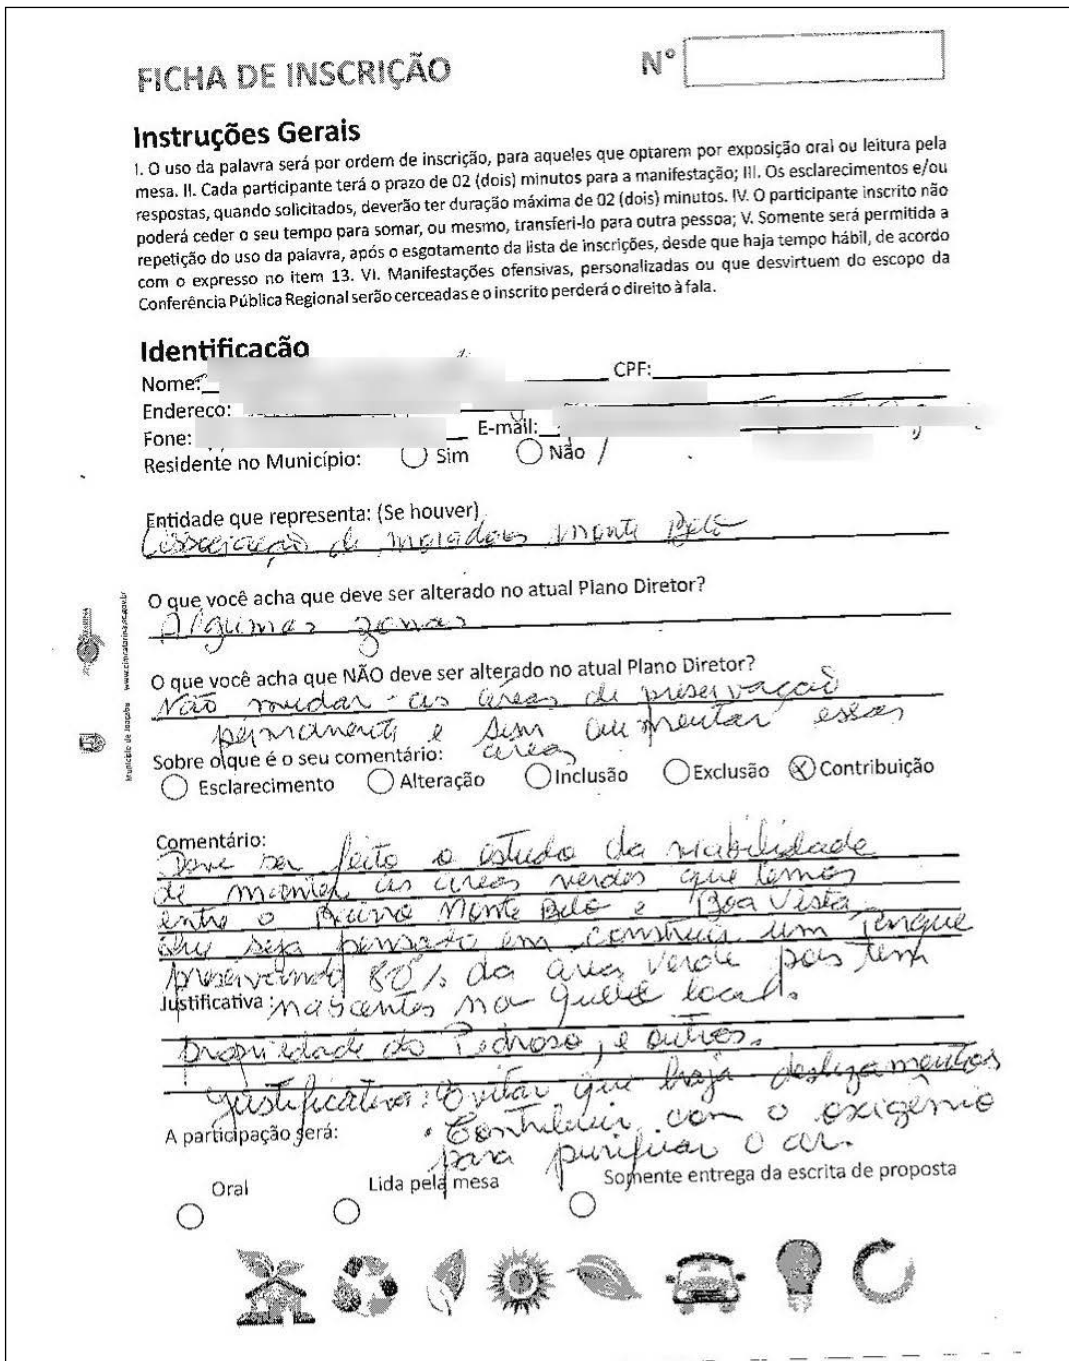 FICHA DE INSCRIÇÃO
Nº
Instruções Gerais
I. O uso da palavra será por ordem de inscrição, para aqueles que optarem por exposição oral ou leitura pela
mesa. II. Cada participante terá o prazo de 02 (dois) minutos para a manifestação; III. Os esclarecimentos e/ou
respostas, quando solicitados, deverão ter duração máxima de 02 (dois) minutos. IV. O participante inscrito não
poderá ceder o seu tempo para somar, ou mesmo, transferi-lo para outra pessoa; V. Somente será permitida a
repetição do uso da palavra, após o esgotamento da lista de inscrições, desde que haja tempo hábil, de acordo
com o expresso no item 13. VI. Manifestações ofensivas, personalizadas ou que desvirtuem do escopo da
Conferência Pública Regional serão cerceadas e o inscrito perderá o direito à fala.
Identificação
Nome: CPF:
Endereço:
Fone: E-mail:
Residente no Município: Sim Não /
Entidade que representa: (Se houver)
Associação de moradores Monte Belo
O que você acha que deve ser alterado no atual Plano Diretor?
Algumas zonas
O que você acha que NÃO deve ser alterado no atual Plano Diretor?
Não mudar as áreas de preservação
permanente e sim aumentar essas
áreas
Sobre o que é o seu comentário:
Esclarecimento Alteração Inclusão Exclusão X Contribuição
Município de Joaçaba www.cimcatarina.sc.gov.br
Comentário:
Deve ser feito o estudo da viabilidade
de manter as áreas verdes que temos
entre o Bairro Monte Belo e Boa Vista,
que seja pensado em construir um Tanque
preservando 80% da área verde pois tem
Justificativa: nascentes na quele local.
propriedade do Pedroso, e outros.
Justificativa: Evitar que haja deslizamentos
• Contribuir com o oxigênio
para purificar o ar.
A participação será:
Oral Lida pela mesa Somente entrega da escrita de proposta